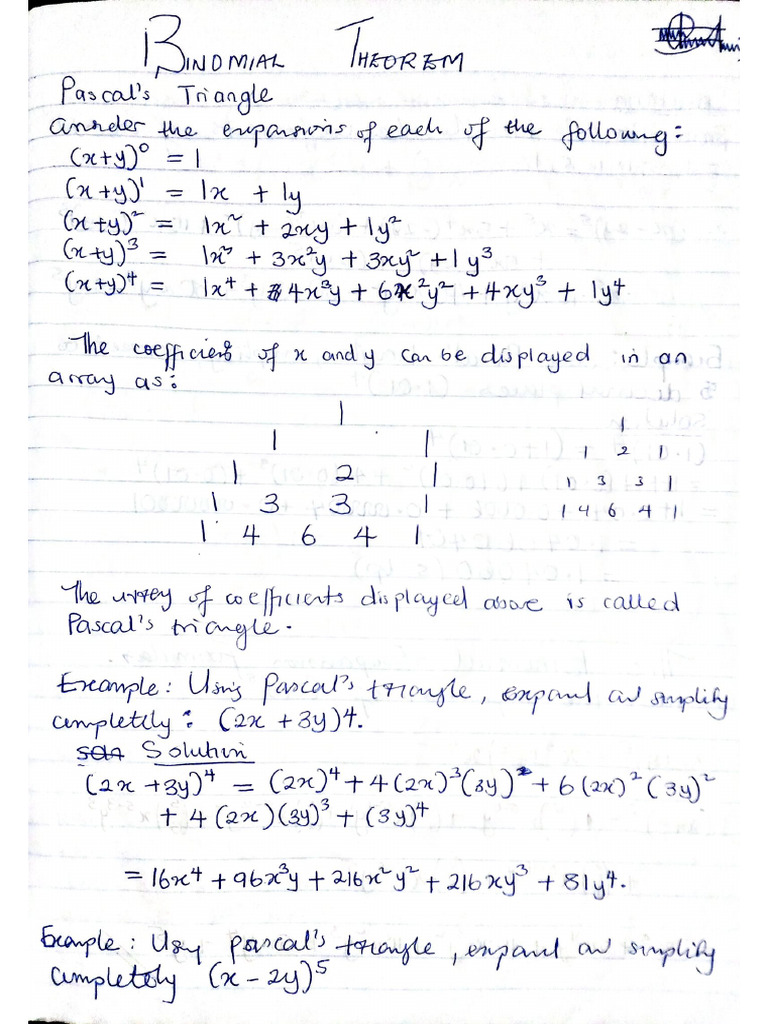 BINOMIAL THEOREM
Pascal's Triangle
Consider the expansions of each of the following:
(x+y)⁰ = 1
(x+y)¹ = 1x + 1y
(x+y)² = 1x² + 2xy + 1y²
(x+y)³ = 1x³ + 3x²y + 3xy² + 1y³
(x+y)⁴ = 1x⁴ + 4x³y + 6x²y² + 4xy³ + 1y⁴
The coefficients of x and y can be displayed in an
array as:
1
1 1
1 2 1
1 3 3 1
1 4 6 4 1
1
1 2 1
1 3 3 1
1 4 6 4 1
The array of coefficients displayed above is called
Pascal's triangle.
Example: Using Pascal's triangle, expand and simplify
completely: (2x + 3y)⁴.
Solution
(2x+3y)⁴ = (2x)⁴ + 4(2x)³(3y) + 6(2x)²(3y)²
+ 4(2x)(3y)³ + (3y)⁴
= 16x⁴ + 96x³y + 216x²y² + 216xy³ + 81y⁴.
Example: Using pascal's triangle, expand and simplify
completely (x - 2y)⁵